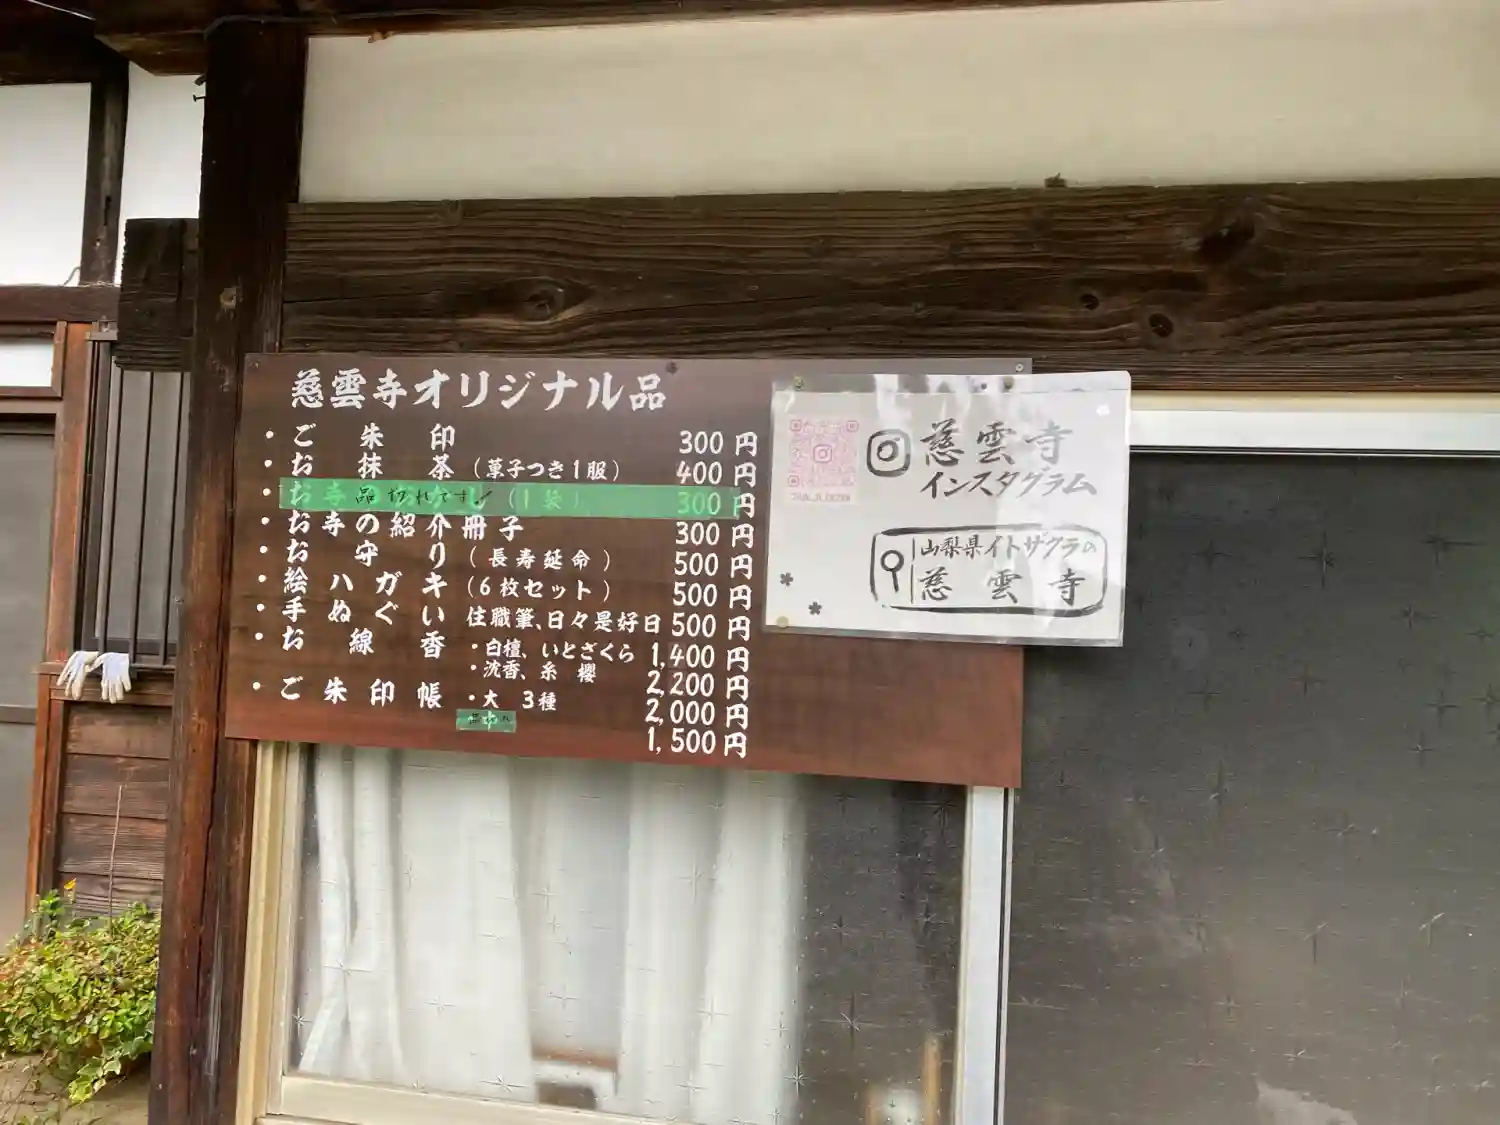 慈雲寺オリジナル品
・ご朱印 300円
・お抹茶(菓子つき1服) 400円
・お寺 品切れです (1袋) 300円
・お寺の紹介冊子 300円
・お守り(長寿延命) 500円
・絵ハガキ(6枚セット) 500円
・手ぬぐい 住職筆、日々是好日 500円
・お線香 ・白檀、いとざくら 1,400円
・沈香、糸櫻 2,200円
・ご朱印帳 ・大 3種 2,000円
品切れ 1,500円
慈雲寺
インスタグラム
山梨県イトザクラの
慈雲寺